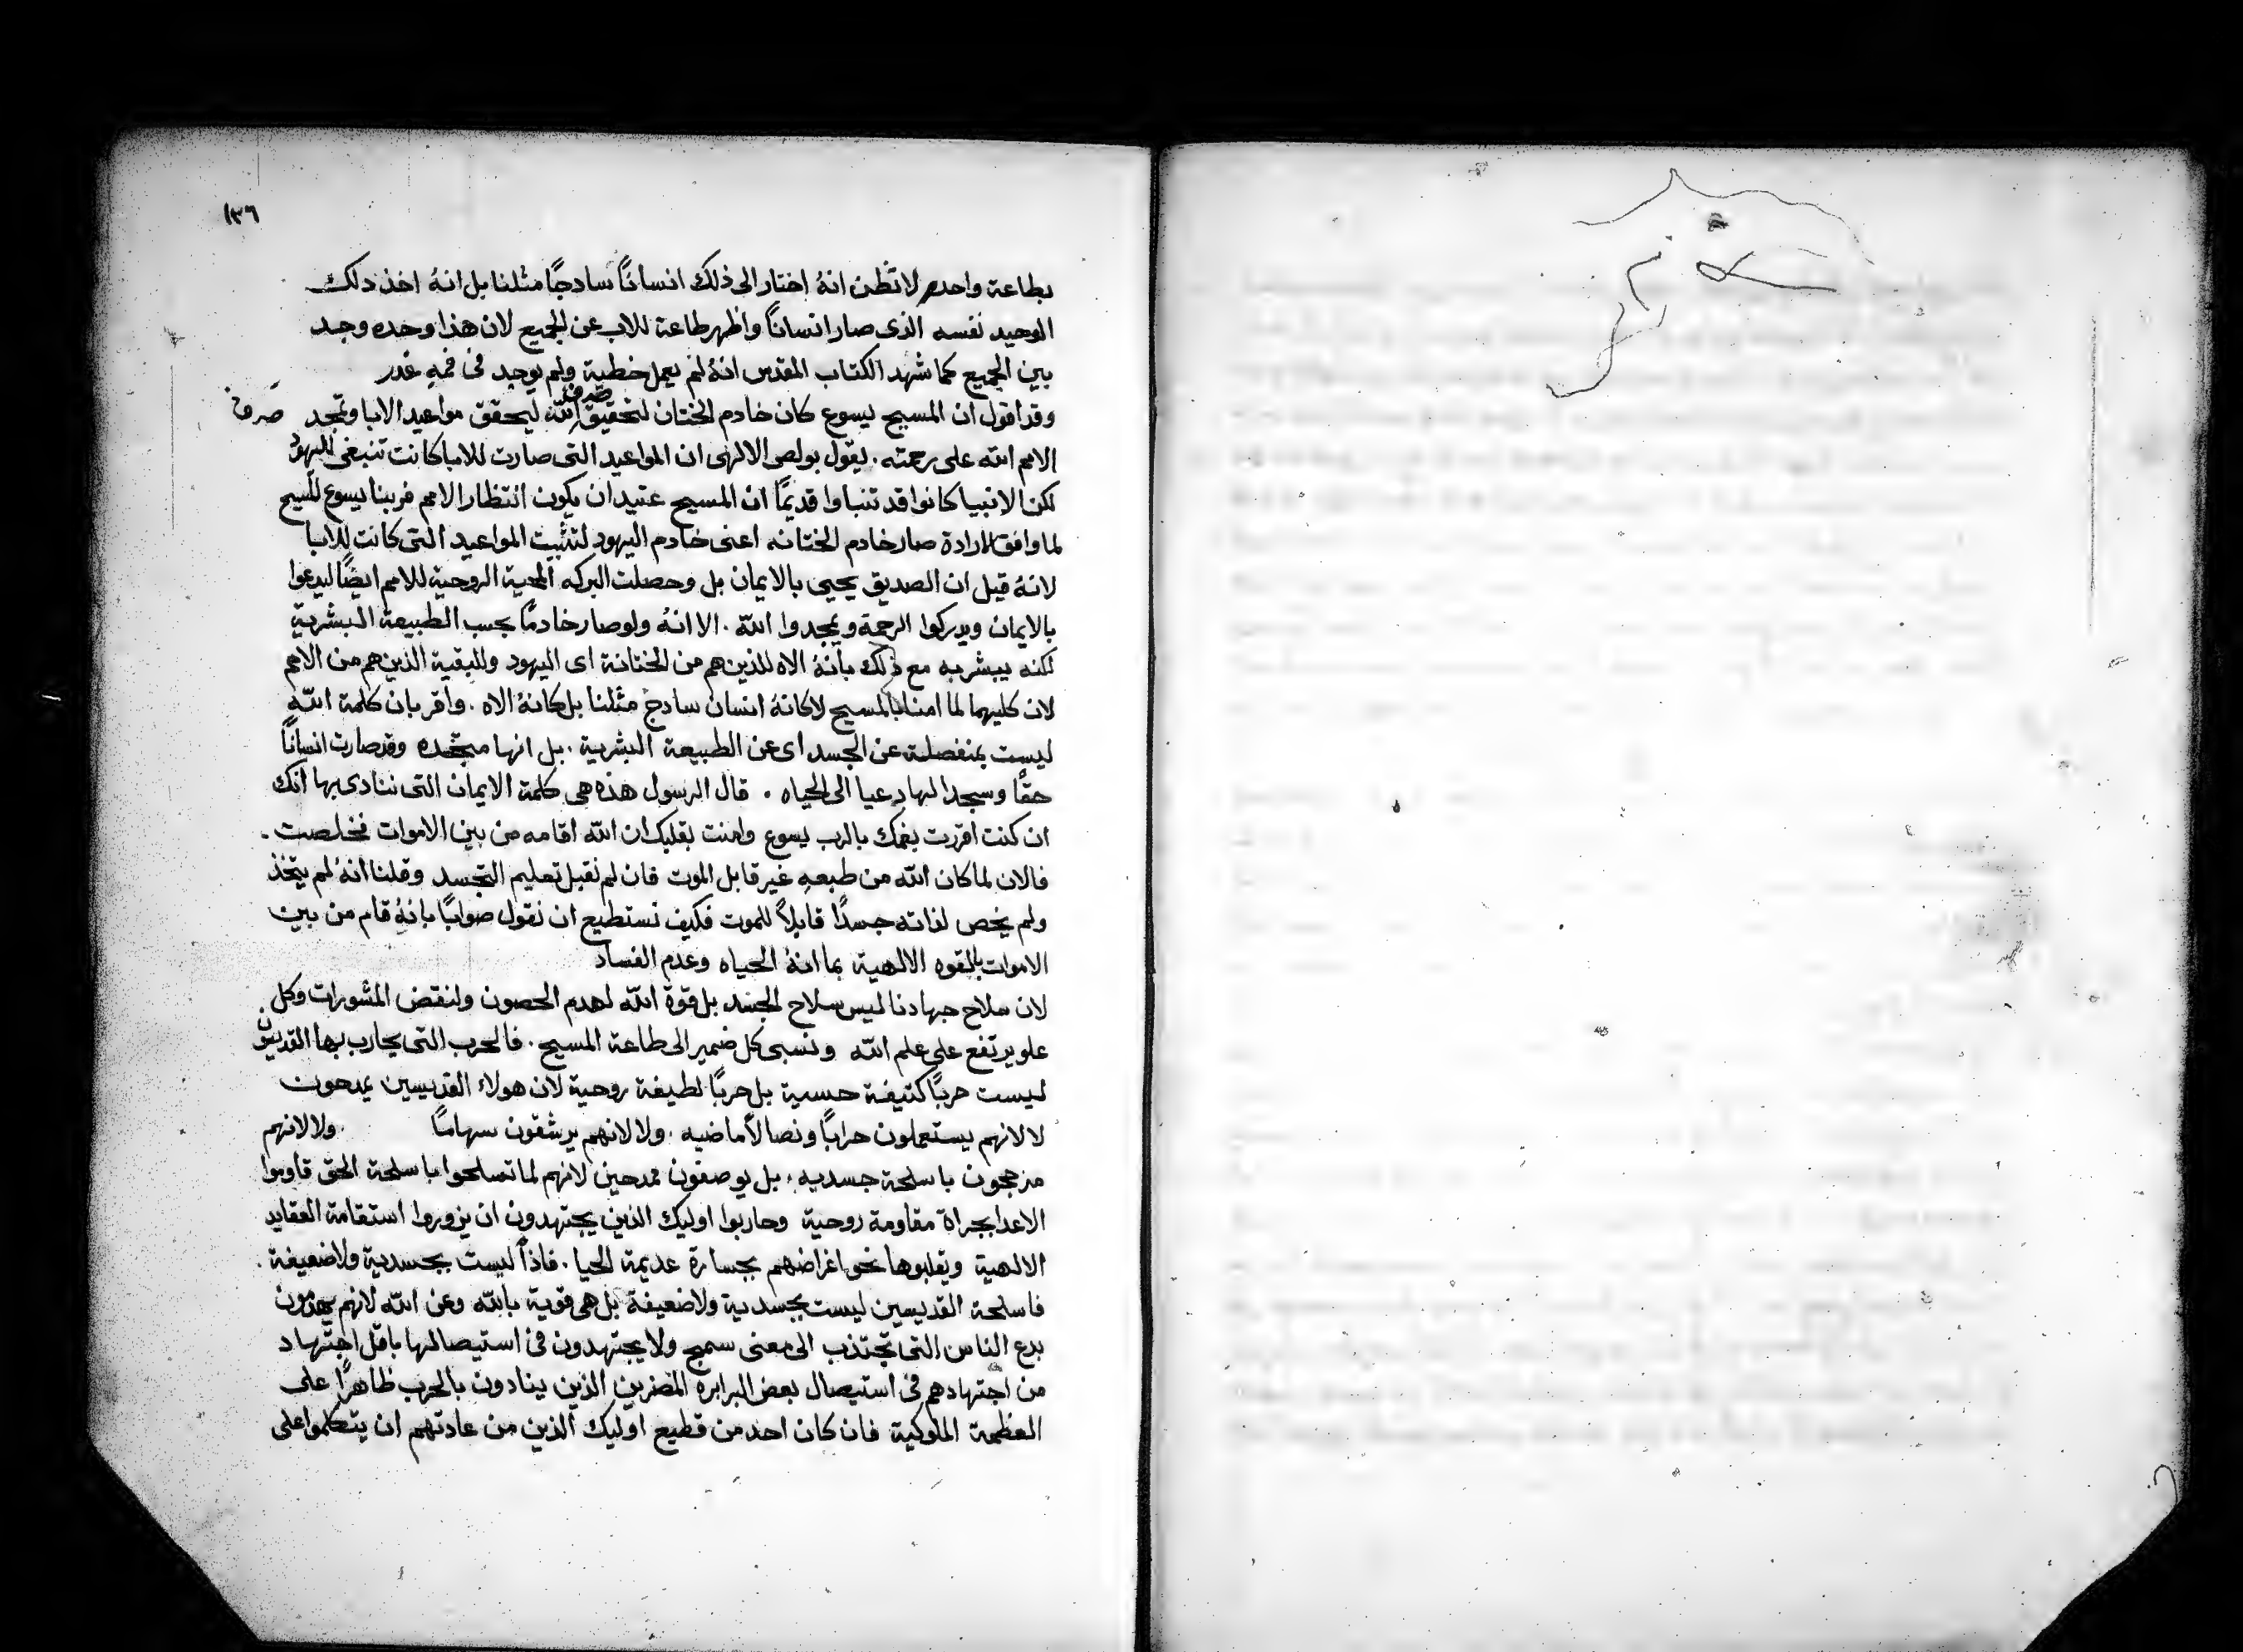 ١٣٦
بطاعة واحده لا تظن انهُ اختار الى ذلك انسانًا سادجًا مثلنا بل انهُ اخذ دلك
الوحيد نفسه الذى صار انسانًا واظهر طاعة للاب عن الجميع لان هذا وحده وجد
بين الجميع كما شهد الكتاب المقدس انهُ لم يعمل خطية ولم يوجد فى فمهِ غدر
وقد اقول ان المسيح يسوع كان خادم الختان لتحقيق صدق الله ليحقق مواعيد الابا وتمجد
الامم الله على رحمته . يقول بولص الالهى ان المواعيد التى صارت للابا كانت تنبغى لليهود
لكن الانبيا كانوا قد تنباوا قديمًا ان المسيح عتيد ان يكون انتظار الامم فربنا يسوع المسيح
لما وافق الارادة صار خادم الختانه اعنى خادم اليهود لتثبيت المواعيد التى كانت للابا
لانهُ قيل ان الصديق يحيى بالايمان بل وحصلت البركه المحيية الروحية للامم ايضًا ليدعوا
بالايمان ويدركوا الرحمة ويمجدوا الله . الا انهُ ولو صار خادمًا بحسب الطبيعة البشرية
لكنه يبشر به مع ذلك بانهُ الاه للذين هم من الختانة اى اليهود وللبقية الذين هم من الامم
لان كليهما لما امنا بالمسيح لا كانهُ انسان سادج مثلنا بل كانهُ الاه . واقر بان كلمة الله
ليست بمنفصلة عن الجسد اى عن الطبيعة البشرية . بل انها متحده وقد صارت انسانًا
حقًا وسجدا لها دعيا الى الحياه . قال الرسول هذه هى كلمة الايمان التى ننادى بها انك
ان كنت اقررت بفمك بالرب يسوع وامنت بقلبك ان الله اقامه من بين الاموات فخلصت .
فالان لما كان الله من طبعهِ غير قابل الموت فان لم نقبل تعليم التجسد وقلنا انهُ لم يتخذ
ولم يخص لذاته جسدًا قابلاً للموت فكيف نستطيع ان نقول صوابًا بانهُ قام من بين
الاموات بالقوه الالهية بما انهُ الحياه وعدم الفساد
لان سلاح جهادنا ليس سلاح الجسد بل قوة الله لهدم الحصون ولنقض المشورات وكل
علو يرتفع على علم الله ونسبى كل ضمير الى طاعة المسيح . فالحرب التى يحارب بها القديسون
ليست حربًا كتيفة حسية بل حربًا لطيفة روحية لان هولاء القديسين يمدحون
لا لانهم يستعملون حرابًا ونصالاً ماضيه . ولا لانهم يرشقون سهامًا . ولا لانهم
مزججون باسلحة جسديه . بل يوصفون ممدحين لانهم لما تسلحوا باسلحة الحق قاوموا
الاعدا بجراة مقاومة روحية وحاربوا اوليك الذين يجتهدون ان يزوروا استقامة العقايد
الالهية ويقلبوها نحو اغراضهم بجسارة عديمة الحيا . فاذاً ليست بجسدية ولا ضعيفة .
فاسلحة القديسين ليست بجسدية ولا ضعيفة بل هى قوية بالله وعن الله لانهم يهدمون
بدع الناس التى تجتذب الى معنى سمج ولا يجتهدون فى استيصالها باقل اجتهاد
من اجتهادهم فى استيصال بعض البرابره المضرين الذين ينادون بالحرب ظاهرًا على
العظمة الملوكية فان كان احد من قطيع اوليك الذين من عادتهم ان يتكلموا على